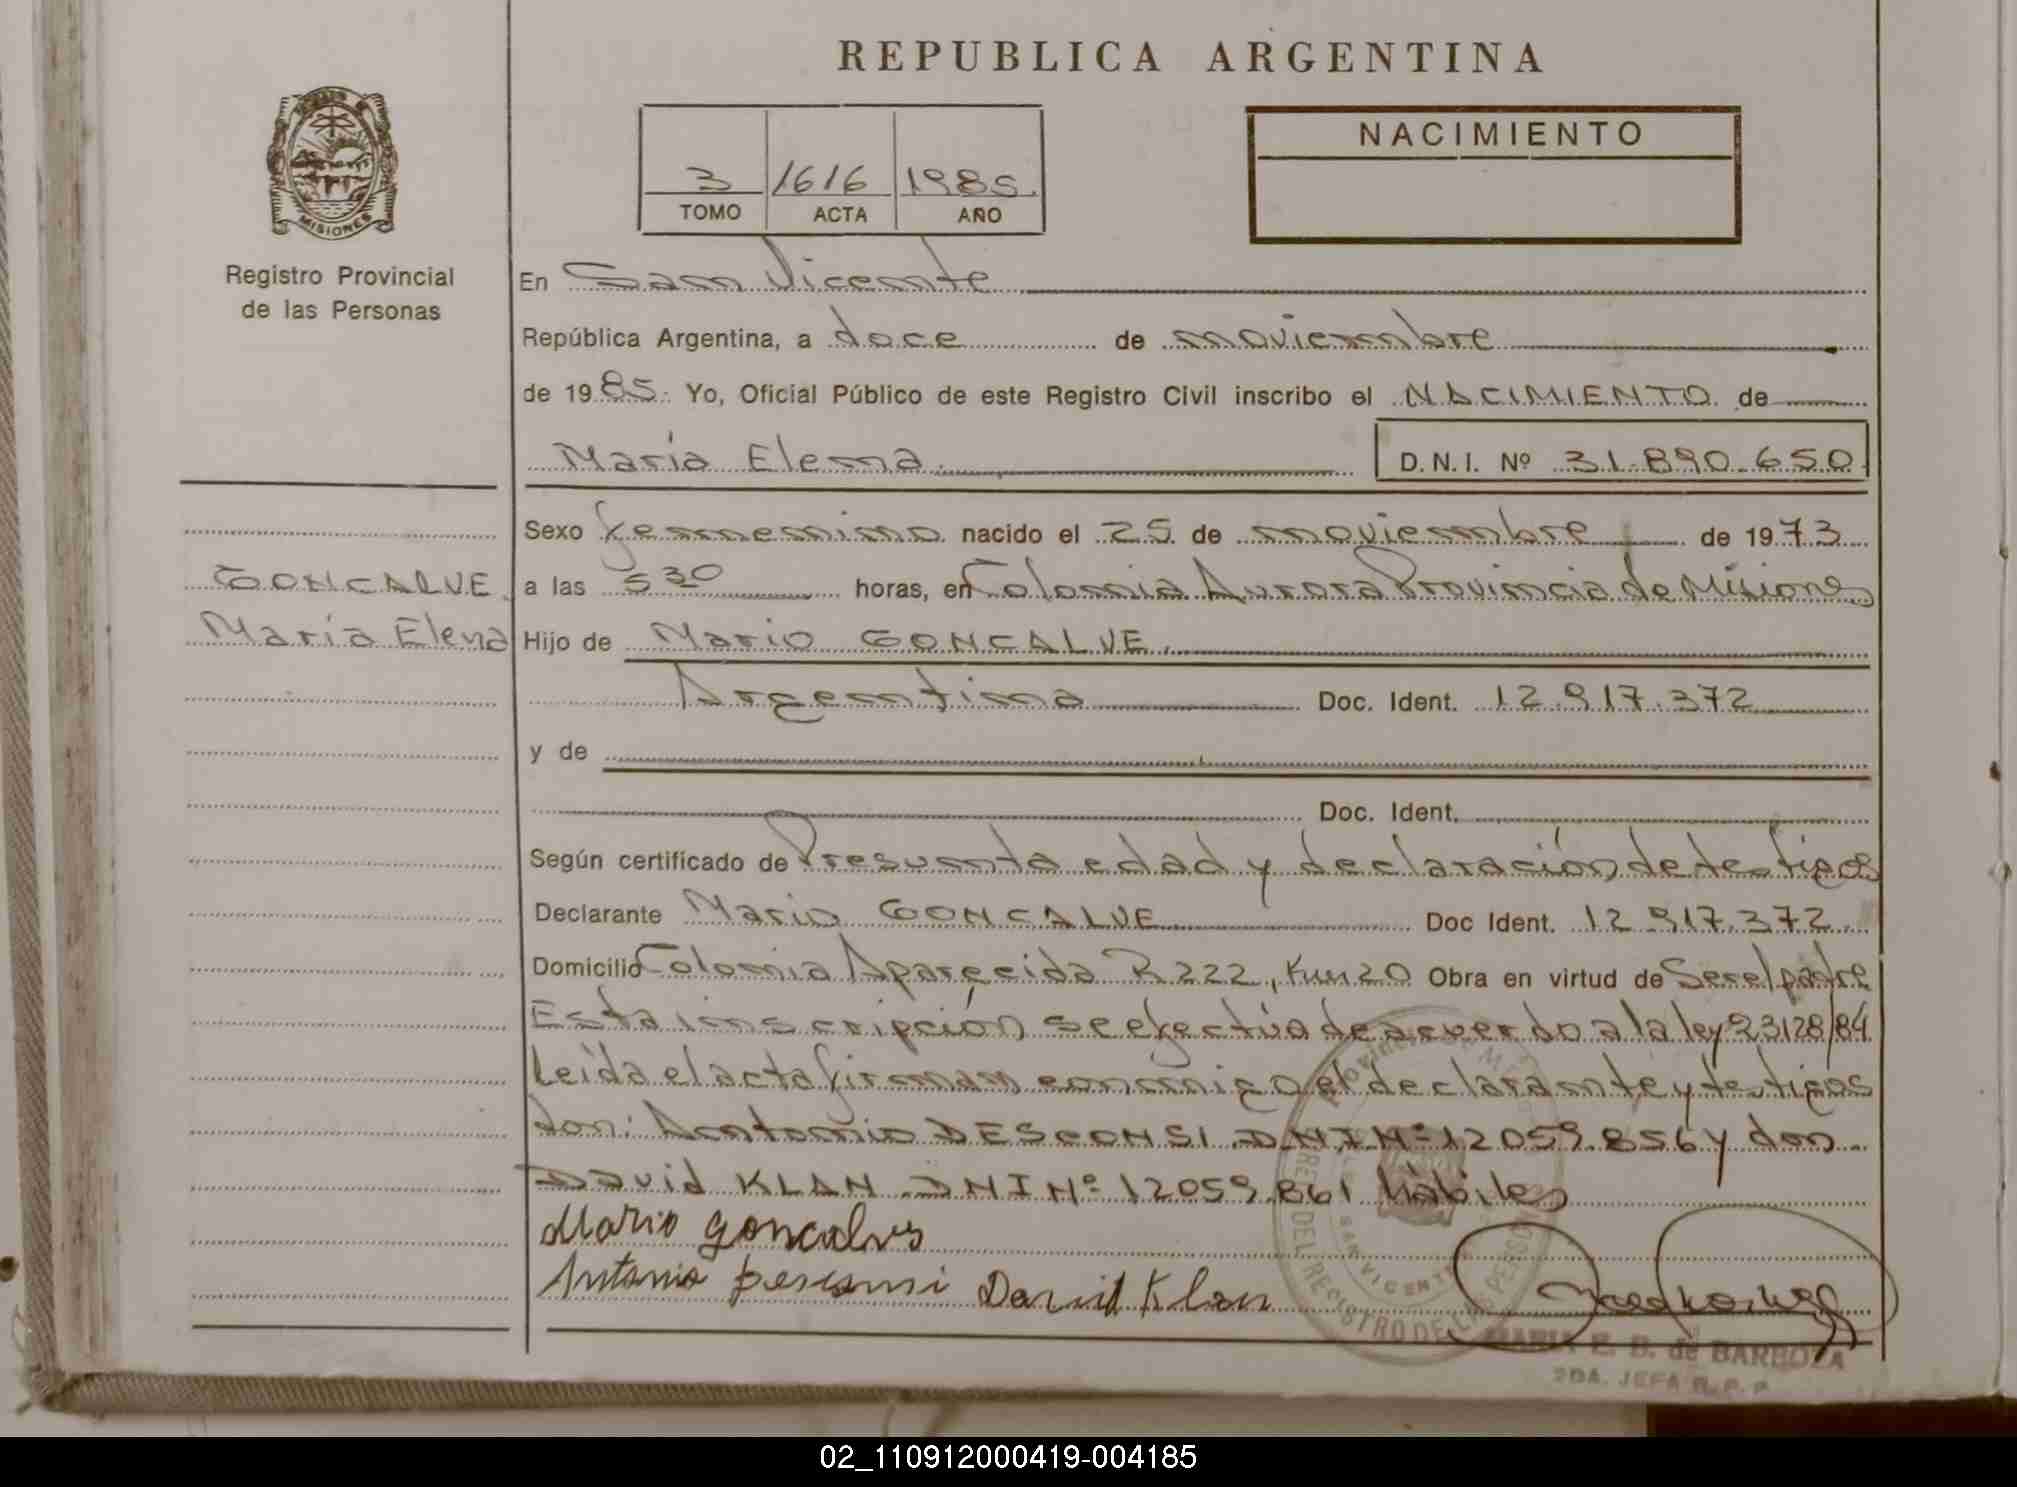 REPUBLICA ARGENTINA
MISIONES
Registro Provincial
de las Personas
3 1616 1985.
TOMO ACTA AÑO
NACIMIENTO
En San Vicente
República Argentina, a doce de noviembre
de 1985. Yo, Oficial Público de este Registro Civil inscribo el NACIMIENTO de
María Elena D.N.I. Nº 31.890.650
Sexo femenino nacido el 25 de noviembre de 1973
GONCALVE
María Elena
a las 5 30 horas, en Colonia Aurora Provincia de Misiones
Hijo de Mario GONCALVE.
Argentina Doc. Ident. 12.917.372
y de
Doc. Ident.
Según certificado de Presunta edad y declaración de testigos
Declarante Mario GONCALVE Doc Ident. 12.917.372
Domicilio Colonia Aparecida R 222, Km 20 Obra en virtud de Ser el padre
Esta inscripción se efectúa de acuerdo a la ley 23128/84
Leida el acta firman conmigo el declarante y testigos
don: Antonio DESCONSI DNI Nº 12059.856 y don
David KLAN DNI Nº 12059.861 hábiles
Mario goncalves
Antonio Desconsi David Klan
SAN VICENTE
MARIA E. B. de BARBOZA
2DA. JEFA R. P. P.
02_110912000419-004185